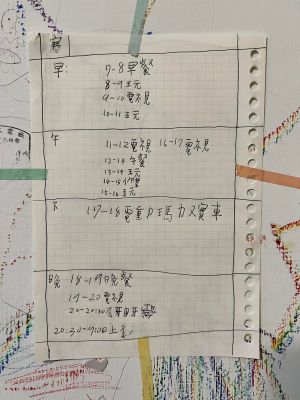 寒
早:
7-8早餐
8-9主元
9-10電視
10-11主元
午
11-12電視 16-17電視
12-13午餐
13-14主元
14-15作業
15-16主元
下
17-18電動瑪力又賽車
晚 18-19晚餐
19-20電視
20-20:30
20:30-9:00上